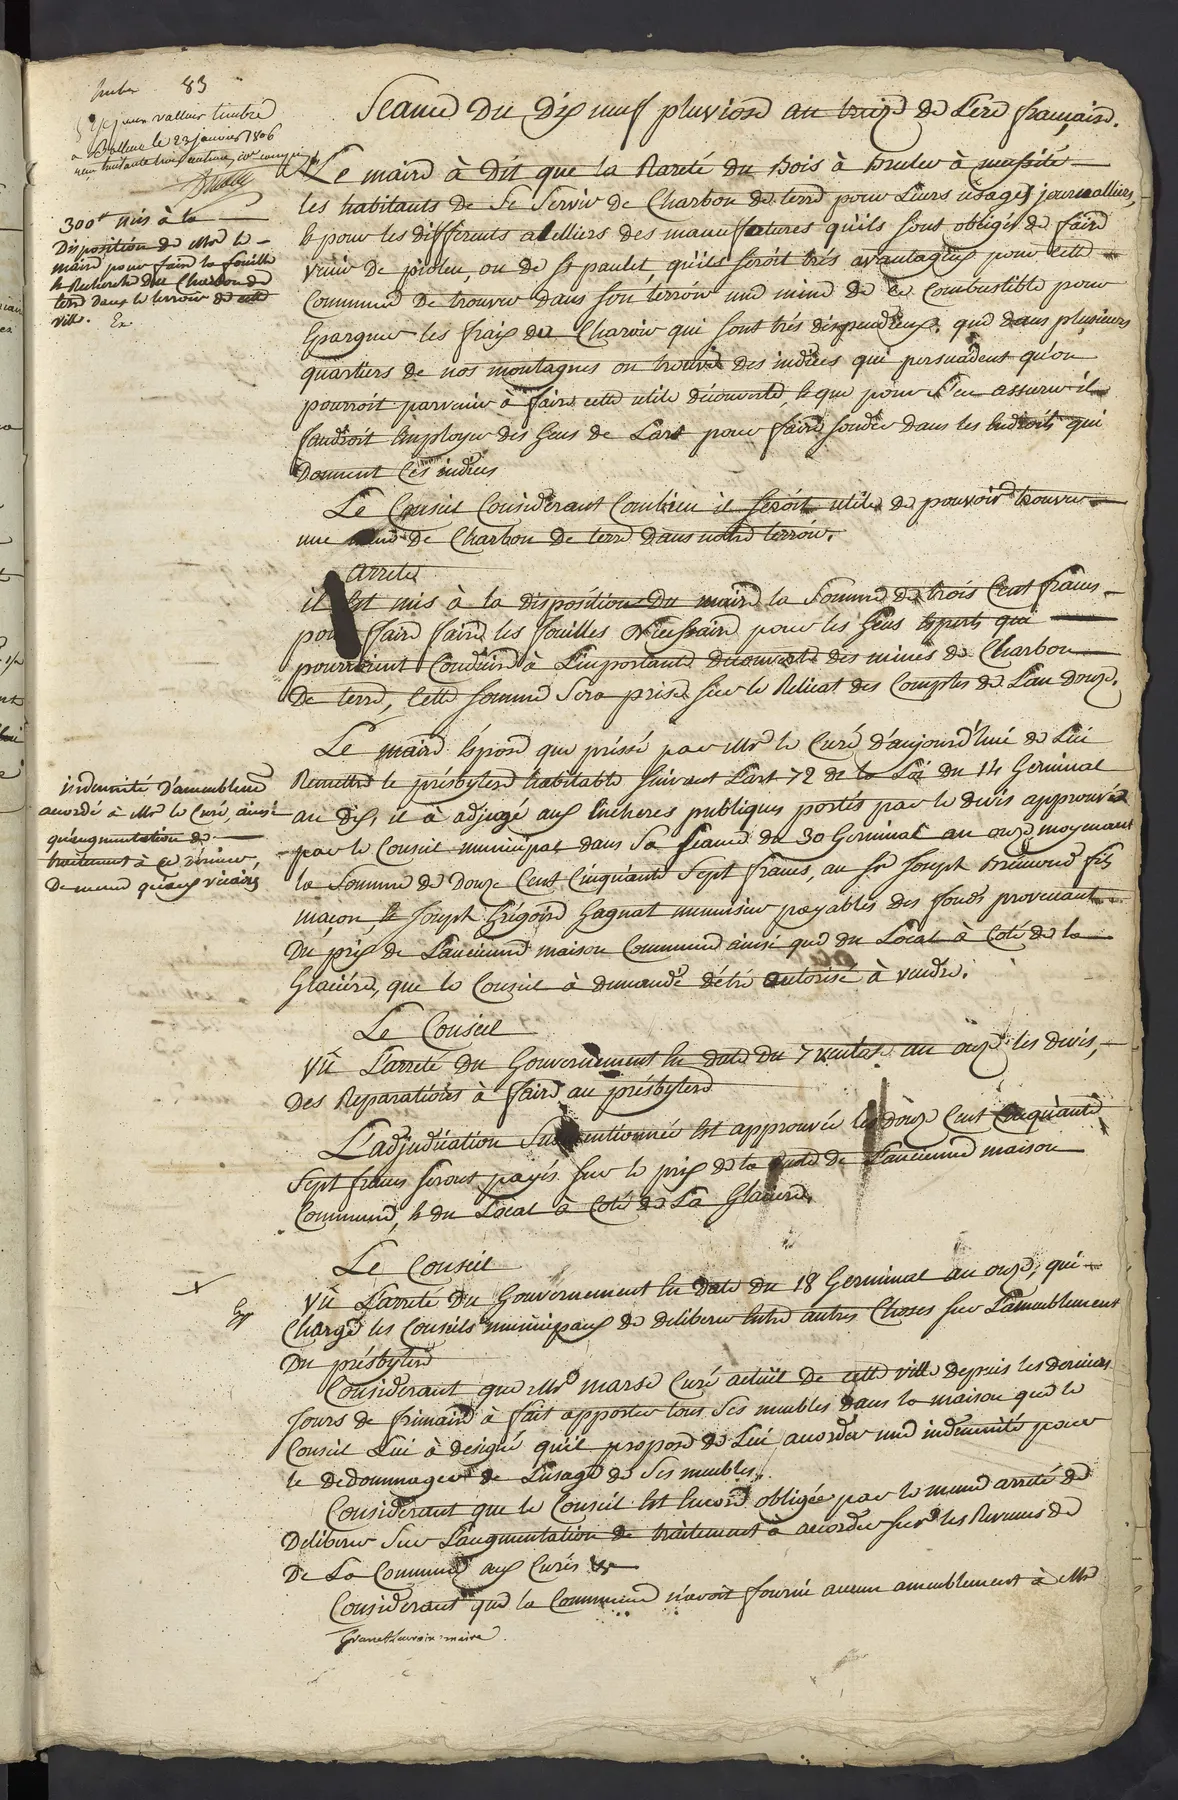 83
a Bollene le 23 janvier 1806
300# mis à la
Disposition de Mr le
maire pour faire la fouille
& Recherche du Charbon de
terre dans le terroir de cette
ville. Ex
Seance Du Dix neuf pluviose an treize de L'ere française.
Le maire à Dit que la Rareté du Bois à Bruler à necessité
les habitants de Se Servir de Charbon de terre pour Leurs usages journalliers,
& pour les differents atelliers des manufactures qu'ils sont obligés de faire
venir de piolen, ou de St paulet, qu'ils seroit trés avantageux pour cette
Commune De trouver dans son terroir une mine de ce Combustible pour
Epargner les fraix de Charroir qui sont trés dispendieux, que dans plusieurs
quartiers de nos montagnes on trouve des indices qui persuadent qu'on
pourroit parvenir à faire cette utile découverte, & que pour s'en assurer il
faudroit Employer des Gens de L'art pour faire sonder dans les Endroits qui
Donnent Ces indices
Le Conseil Considerant Combien il seroit utile de pouvoir trouver
une mine de Charbon de terre dans notre terroir.
Arrete
il Est mis à la disposition Du maire la Somme de trois Cent francs
pour faire faire les fouilles necessaire pour les Gens Experts qui
pourroient Conduire à L'importante decouverte des mines de Charbon
De terre, Cette somme Sera prise sur le Relicat des Comptes de L'an Douze.
indemnité D'ameublement
accordé à Mr le Curé, ainsi
qu'augmentation de
traitement à ce dernier,
De meme qu'aux vicaires
Le maire Expose que préssé par Mr le Curé d'aujourd'hui de Lui
Remettre le présbytere habitable suivant L'art 72 de la Loi du 14 Germinal
an dix, il à adjugé aux Encheres publiques portés par le devis approuvé
par le Conseil municipal dans Sa Seance du 30 Germinal an onze, moyenant
la Somme de Douze Cent Cinquante Sept francs, au Sr Joseph fils
maçon, & Joseph Grégoire Gagnat menuisier payables des fonds provenant
Du prix de L'ancienne maison Commune ainsi que du Local à Coté de la
Glaciére, que le Conseil à demandé d'étre autorisé à vendre.
Le Conseil
Vû L'arreté Du Gouvernement En date du 7 ventose an onze les devis,
Des Reparations à faire au présbytere
L'adjudication Susmentionnée Est approuvée les douze Cent Cinquante
Sept francs seront payés sur le prix de la vente de L'ancienne maison
Commune, & du Local à Coté de La Glaciere.
Le Conseil
Ex
Vû L'arreté Du Gouvernement En Date du 18 Germinal an onze, qui
Charge les Conseils municipaux de deliberer Entre autres Choses sur L'ameublement
Du présbytere
Considerant que Mr marse Curé actuel de cette ville depuis les derniers
Jours de frimaire à fait apporter tous Ses meubles dans la maison que le
Conseil Lui à designé qu'il propose de Lui accorder une indemnité pour
le dedommager de L'usage de Ses meubles.
Considerant que le Conseil Est Encore obligée par le meme arreté de
Deliberer Sur L'augmentation de traitement à accorder sur les Revenus de
De La Commune aux Curés &c
Considerant que la Commune n'avoit fourni aucun ameublement à Mr
maire